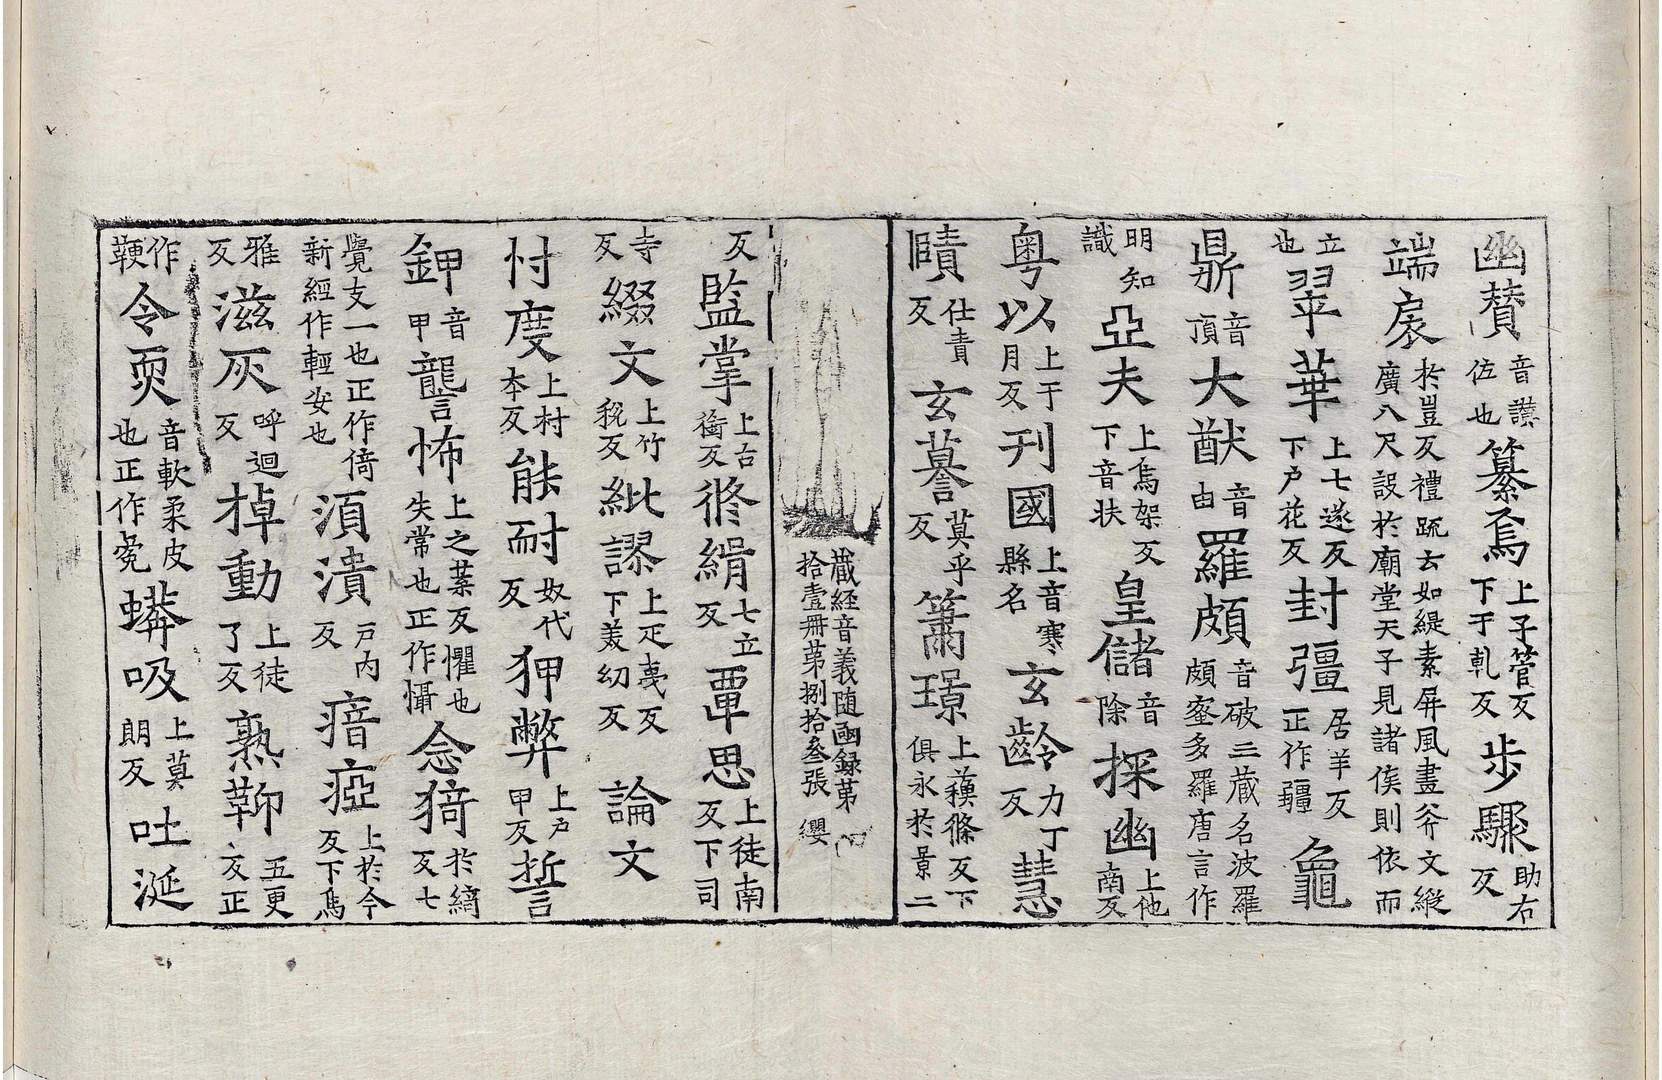 幽贊音讃佐也纂焉上子管反下于軋反步驟助右反
端扆於豈反禮䟽云如綈素屏風畫斧文縱廣八尺設於廟堂天子見諸侯則依而
立也翠華上七遂反下户花反封彊居羊反正作疆龜
鼎音頂大猷音由羅頗音破三藏名波羅頗蜜多羅唐言作
明知識亞夫上烏架反下音扶皇儲音除探幽上他南反
粤以上于月反刊國上音寒縣名玄齡力丁反慧
賾仕責反玄謩莫乎反簫璟上蘓條反下俱永於景二
藏経音義随函録第
拾壹冊第捌拾叄張 纓
反監掌上古銜反修緝七立反覃思上徒南反下司
寺反綴文上竹稅反紕謬上疋夷反下美幼反論文
忖度上村本反能耐奴代反狎弊上户甲反誓
鉀音甲讋怖上之葉反懼也失常也正作懾念猗於綺反七
覺支一也正作倚新經作輕安也湏潰户内反瘖瘂上於今反下烏
雅反滋灰呼迴反掉動上徒了反熟䩕五更反正
作鞕令耎音軟柔皮也正作㼱蟒吸上莫朗反吐涎